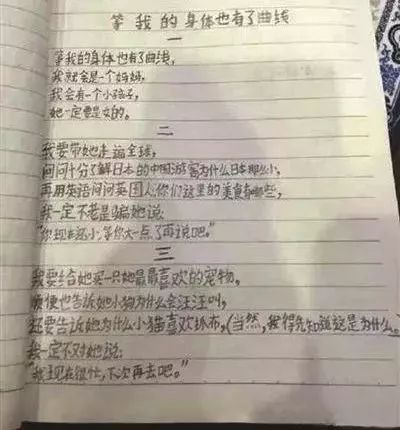 等我的身体也有了曲线
一
等我的身体也有了曲线,
我就会是一个妈妈,
我会有一个小孩子,
她一定要是女的。
二
我要带她走遍全球,
问问十分了解日本的中国游客为什么日本那么小,
再用英语问问英国人你们这里的美食有哪些,
我一定不老是骗她说:
"你现在还小,等你大一点了再说吧。"
三
我要给她买一只她最最喜欢的宠物。
顺便也告诉她小狗为什么会汪汪叫,
还要告诉她为什么小猫喜欢抓布,(当然,我得先知道这是为什么。)
我一定不对她说:
"我现在很忙,下次再去吧。"